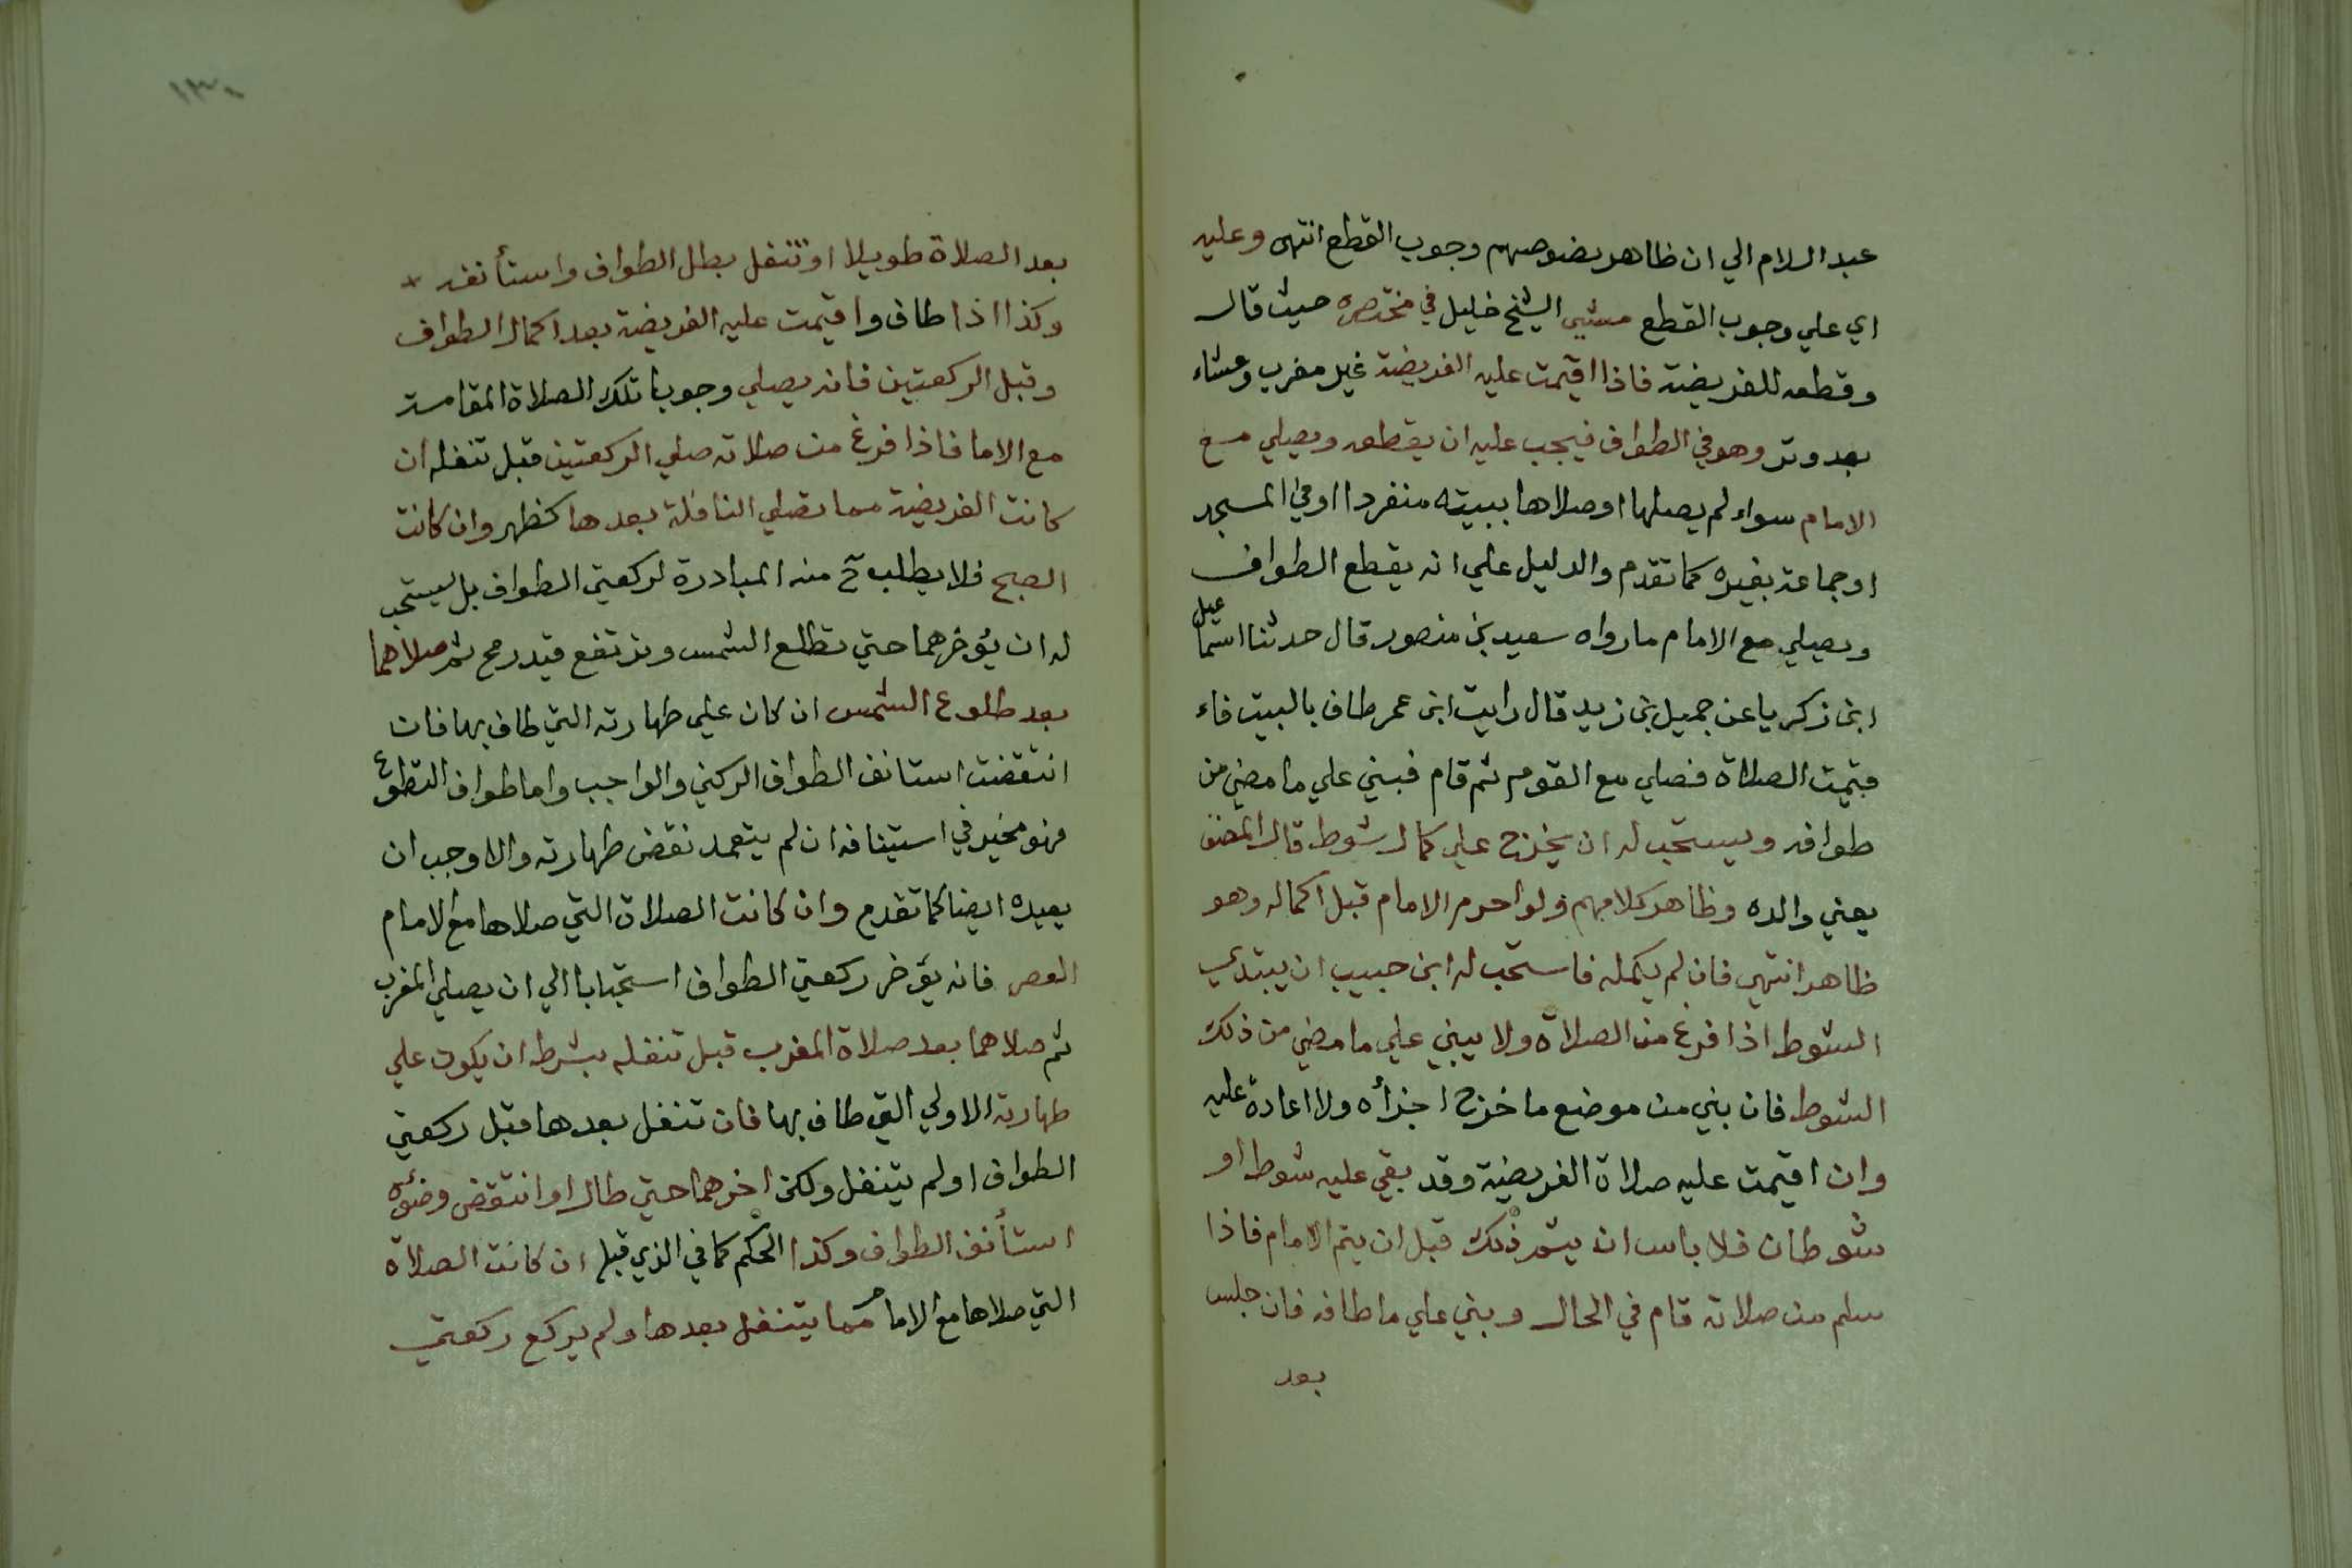 عبد السلام الي ان ظاهر نصوصهم وجوب القطع انتهى وعليه
اي علي وجوب القطع مشي الشيخ خليل في مختصره حيث قال
وقطعه للفريضة فاذا اقيمت عليه الفريضة غير مغرب وعشاء
بعد وتر وهو في الطواف فيجب عليه ان يقطعه ويصلي مع
الامام سواء لم يصلها او صلاها ببيته منفردا او في المسجد
او جماعة بغيره كما تقدم والدليل علي انه يقطع الطواف
ويصلي مع الامام ما رواه سعيد بن منصور قال حدثنا اسماعيل
ابن زكريا عن جميل بن زيد قال رايت ابن عمر طاف بالبيت فاء
قيمت الصلاة فصلي مع القوم ثم قام فبني علي ما مضي من
طوافه ويستحب له ان يخرج علي كمال شوط قال المصنف
يعني والده وظاهر كلامهم ولو احرم الامام قبل اكماله وهو
ظاهر انتهى فان لم يكمله فاستحب له ابن حبيب ان يبتدي
الشوط اذا فرغ من الصلاة ولا يبني علي ما مضي من ذلك
الشوط فان بني من موضع ما خرج اجزأه ولا اعادة عليه
وان اقيمت عليه صلاة الفريضة وقد بقي عليه شوط او
شوطان فلا باس ان يتم ذلك قبل ان يتم الامام فاذا
سلم من صلاته قام في الحال وبني علي ما طافه فان جلس
بعد
١٣٠
بعد الصلاة طويلا او تنفل بطل الطواف واستأنفه
وكذا اذا طاف واقيمت عليه الفريضة بعد اكمال الطواف
وقبل الركعتين فانه يصلي وجوبا تلك الصلاة المقامة
مع الاما فاذا فرغ من صلاته صلي الركعتين قبل تنفله ان
كانت الفريضة مما تصلي النافلة بعدها كظهر وان كانت
الصبح فلا يطلب ح منه المبادرة لركعتي الطواف بل يستحب
له ان يؤخرهما حتي تطلع الشمس وترتفع قيد رمح ثم صلاهما
بعد طلوع الشمس ان كان علي طهارته التي طاف بها فان
انتقضت استانف الطواف الركني والواجب واما طواف التطوع
فهو مخير في استينافه ان لم يتعمد نقض طهارته والا وجب ان
يعيده ايضا كما تقدم وان كانت الصلاة التي صلاها مع الامام
العصر فانه يؤخر ركعتي الطواف استحبابا الي ان يصلي المغرب
ثم صلاهما بعد صلاة المغرب قبل تنفله بشرط ان يكون علي
طهارته الاولي التي طاف بها فان تنفل بعدها قبل ركعتي
الطواف او لم يتنفل ولكن اخرهما حتي طال او انتقض وضوئه
استأنف الطواف وكذا الحكم كما في الذي قبله ان كانت الصلاة
التي صلاها مع الامام مما يتنفل بعدها ولم يركع ركعتي